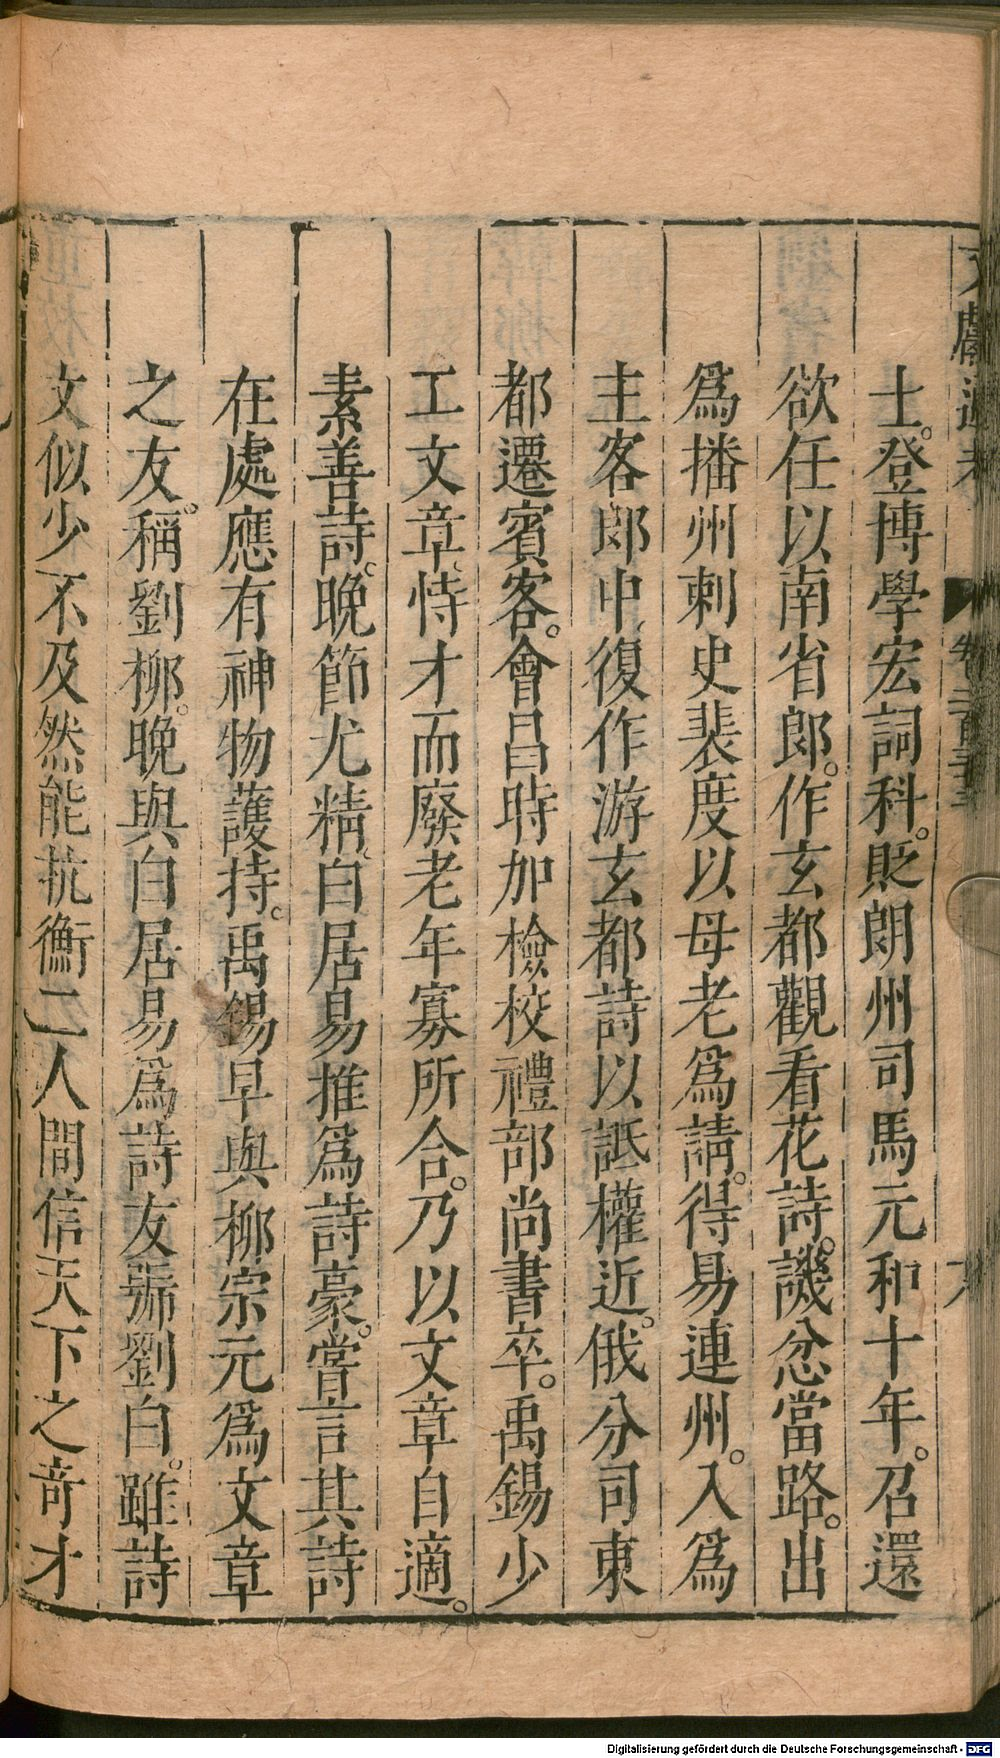 文獻通考 卷二百三十三
士。登博學宏詞科。貶朗州司馬元和十年。召還
欲任以南省郎。作玄都觀看花詩。譏忿當路。出
爲播州刺史裴度以母老爲請。得易連州。入爲
主客郎中。復作游玄都詩以詆權近。俄分司東
都遷賓客。會昌時加檢校禮部尚書卒。禹錫少
工文章。恃才而廢老年寡所合。乃以文章自適。
素善詩。晚節尤精。白居易推爲詩豪。嘗言其詩
在處應有神物護持。禹錫早與柳宗元爲文章
之友。稱劉柳。晚與白居易爲詩友號劉白。雖詩
文似少不及然能抗衡二人間信天下之奇才
Digitalisierung gefördert durch die Deutsche Forschungsgemeinschaft - DFG